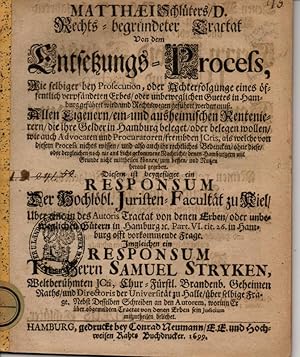 MATTHÆI Schlüters/D.
Rechts-begründeter Tractat
Von dem
Entsetzungs-Process,
Wie selbiger bey Prosecution, oder Achterfolgunge eines öf-
fentlich verpfändeten Erbes/ oder unbeweglichen Guetes in Ham-
burg geführet wird und Rechtswegen geführet werden muß.
Allen Eigenern/ ein-und ausheimischen Rentenie-
rern/ die ihre Gelder in Hamburg beleget/ oder belegen wollen/
wie auch Advocaten und Procuratoren/ frembden JCtis, als welche von
diesem Process nichts wissen/ und also auch
Grunde nicht mittheilen können/ zum besten/ und Nutzen
heraus gegeben.
Diesem ist beygefüget ein
RESPONSUM
Der Hochlöbl. Juristen-Facultät zu Kiel/
Uber einem des Autoris Tractat von denen Erben/ oder unbe-
weglichen Gütern in Hamburg &c. Part. VI. tit. 26. in Ham-
burg offt vorkommende Frage.
Imgleichen ein
RESPONSUM
Herrn SAMUEL STRYKEN,
Weltberühmten JCti, Chur-Fürstl. Brandenb. Geheimen
Raths/ und Directoris der Universität zu Halle/ über selbige Fra-
ge. Nebst Desselben Schreiben an den Autorem, worinn Er
über obgemeldten Tractat von denen Erben sein Judicium
mitzutheilen beliebet.
HAMBURG, gedruckt bey Conrad Neumann/ E. E. und Hoch-
weisen Rahts Buchdrucker. 1699.